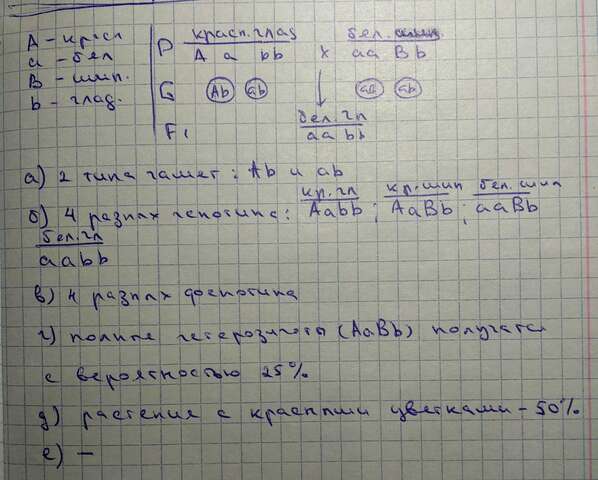 А - красн
а - бел
В - шип.
b - глад.
P красн. глад бел. шип
A a bb x aa Bb
G Ab ab aB ab
F1 бел. гл
aa bb
а) 2 типа гамет: Ab и ab
б) 4 разных генотипа: кр. гл Aabb; кр. шип AaBb; бел. шип aaBb
бел. гл
aabb
в) 4 разных фенотипа
г) полные гетерозиготы (AaBb) получатся
с вероятностью 25%
д) растение с красными цветками - 50%
е) —